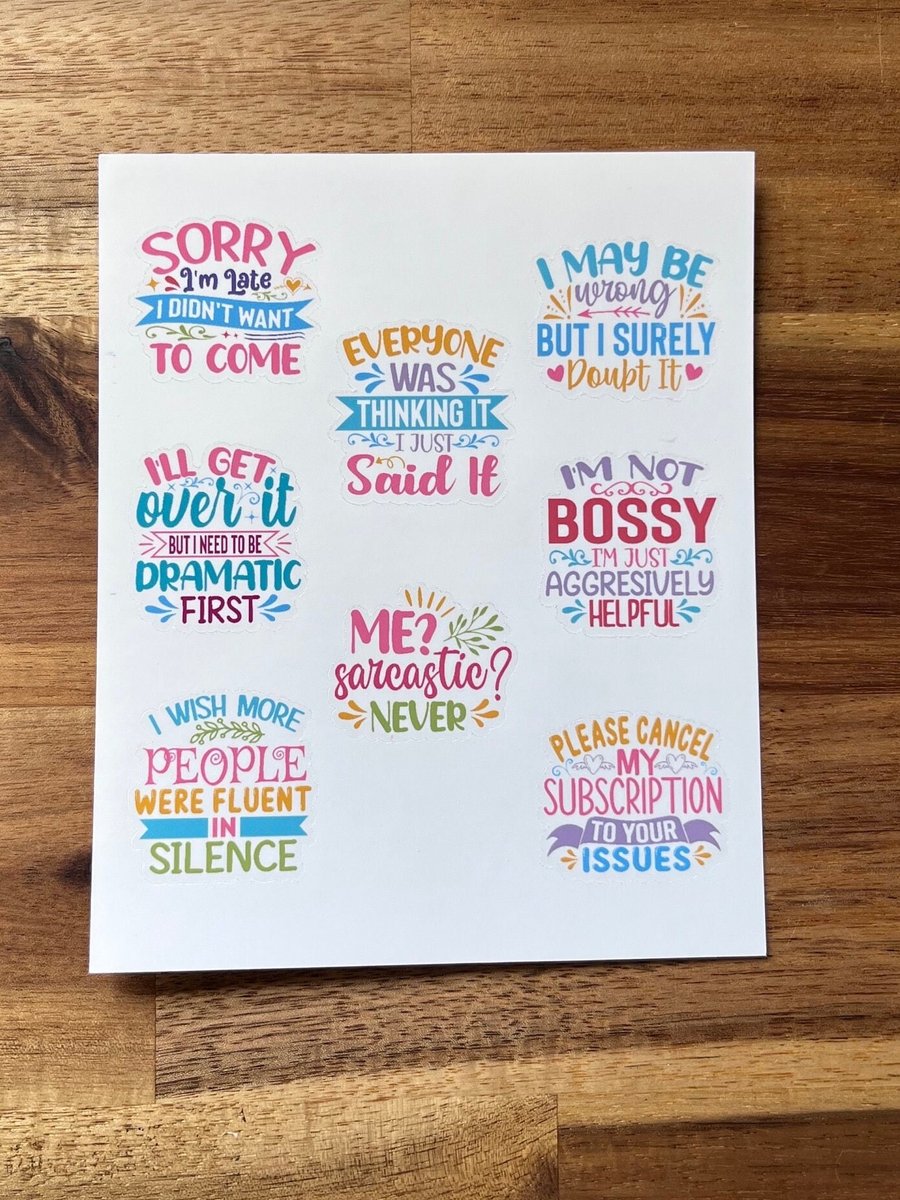 SORRY
I'm Late
I DIDN'T WANT
TO COME
I'LL GET
over it
BUT I NEED TO BE
DRAMATIC
FIRST
I WISH MORE
PEOPLE
WERE FLUENT
IN
SILENCE
EVERYONE
WAS
THINKING IT
I JUST
Said It
ME?
sarcastic?
NEVER
I MAY BE
wrong
BUT I SURELY
Doubt It
I'M NOT
BOSSY
I'M JUST
AGGRESIVELY
HELPFUL
PLEASE CANCEL
MY
SUBSCRIPTION
TO YOUR
ISSUES